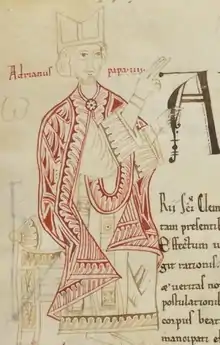 Adrianus papa·IIII·
A
Rii Sc̄i Clem
tam presenti
Effectum u
git rationis.
æ uerizat no
postulationi
corpus bear
mancipari et